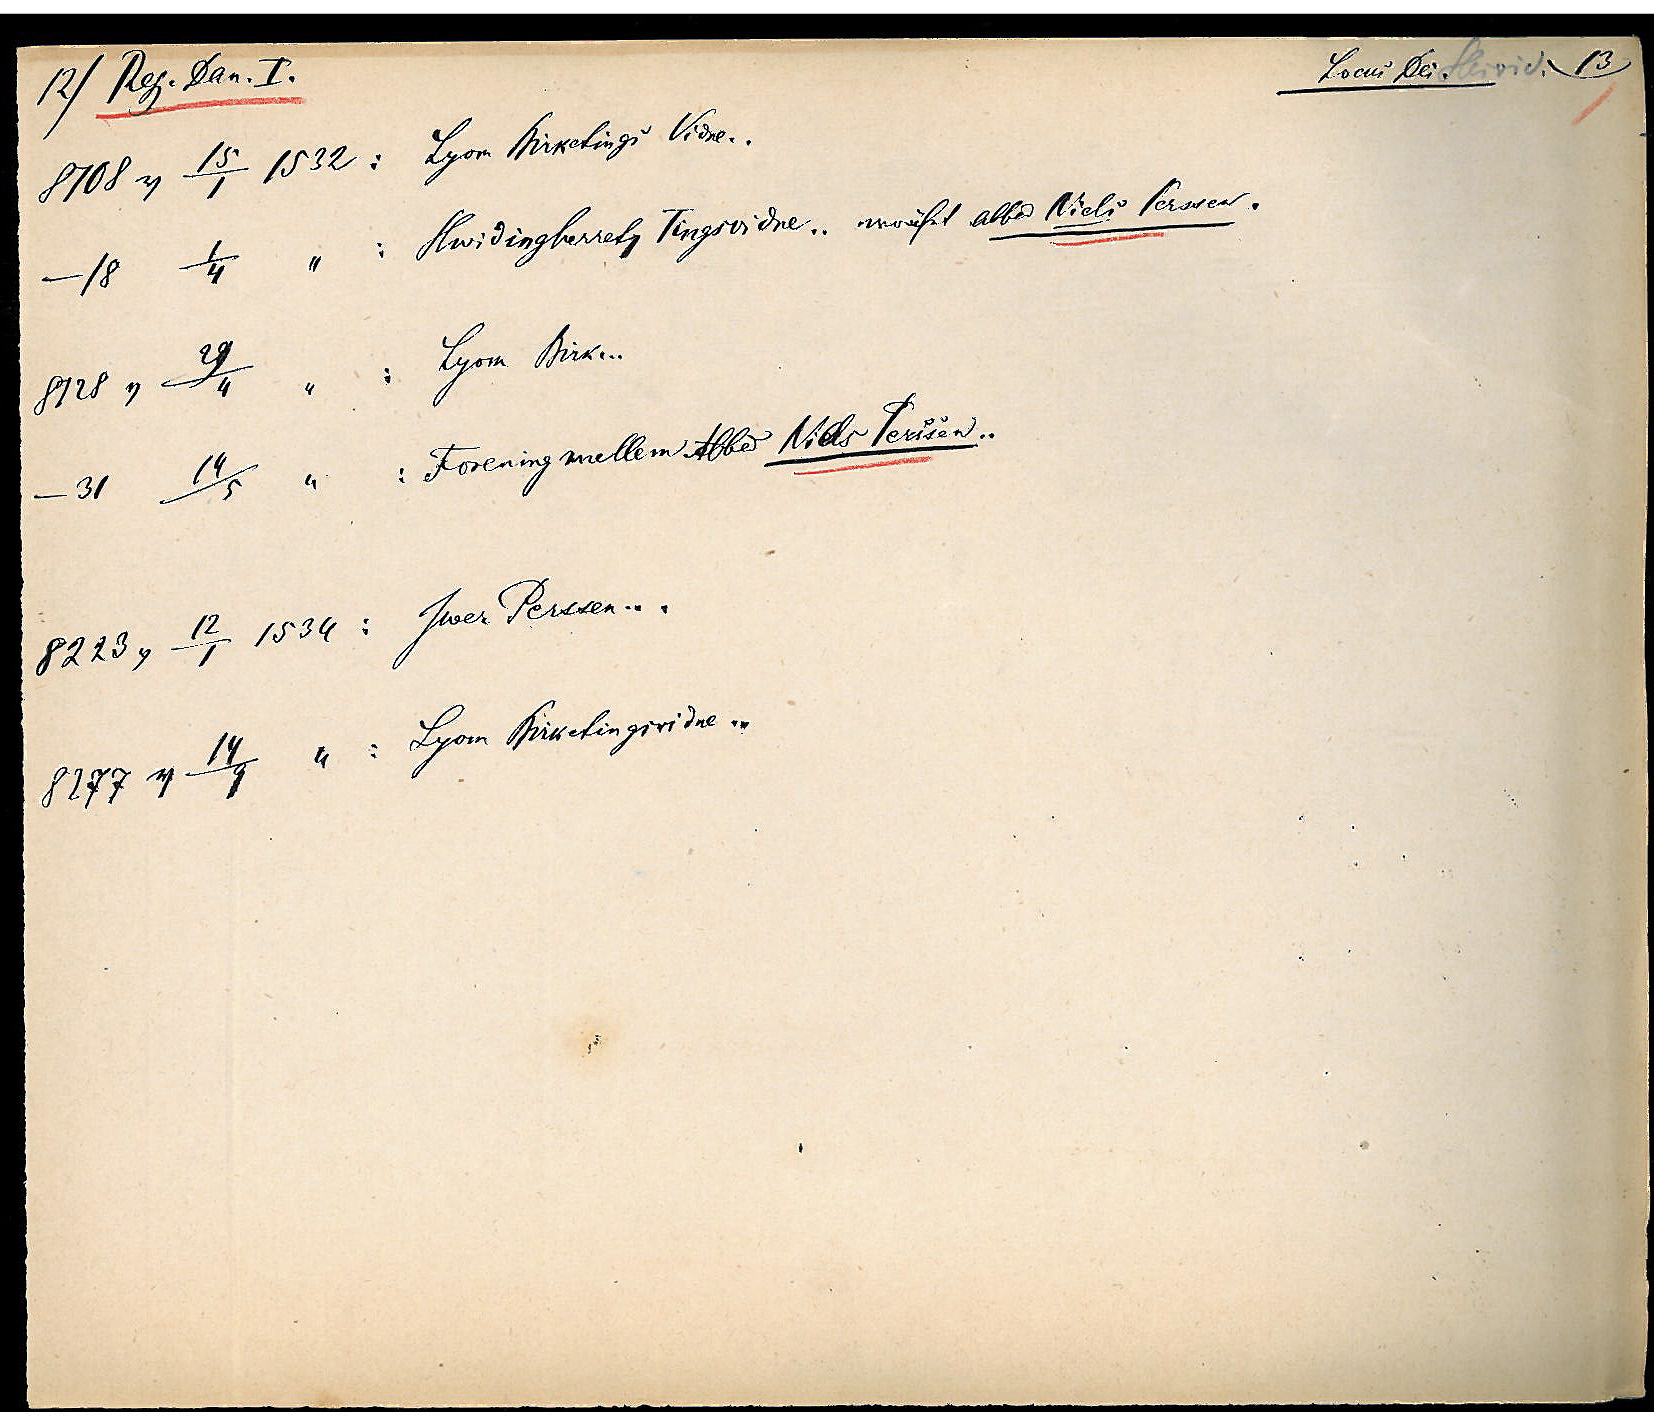 12/ Reg. Dan. I. Locus Dei. 13
8708 15/1 1532 : Lyom Birketings Vidne..
—18 1/4 " : Hwidingherretz Tingsvidne.. abbed Niels Perssen.
8728 29/4 " : Lyom Birk...
—31 14/5 " : Forening mellem Abbed Niels Perssen..
8223 12/1 1534 : Jwer Perssen...
8277 14/9 " : Lyom Birketingsvidne...